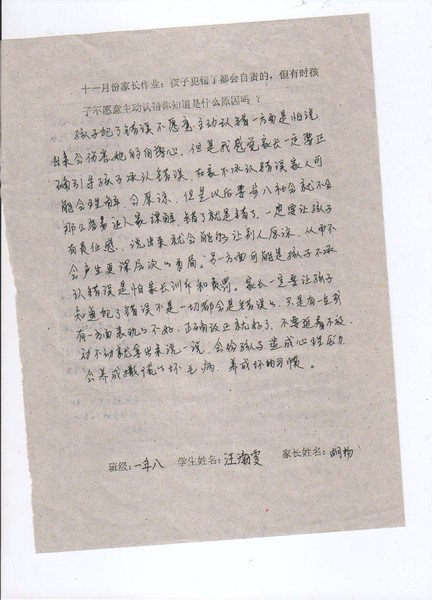 十一月份家长作业：孩子犯错了都会自责的，但有时孩
子不愿意主动认错你知道是什么原因吗？
孩子犯了错误不愿意主动认错一方面是怕说
出来会伤害她的自尊心，但是我感觉家长一定要正
确引导孩子承认错误，在家不承认错误家人可
能会理解，会原谅，但是以后要步入社会就不会
那么容易让人家谅解，错了就是错了，一定要让孩子
有责任感，说出来就会能够让别人原谅，从中不
会产生更深层次的矛盾。另一方面可能是孩子不承
认错误是怕家长训斥和责骂。家长一定要让孩子
知道犯了错误不是一切都会是错误的，只是有一点或
有一方面表现的不好，正确改正就好了，不要延着不放，
动不动就拿出来说一说，会给孩子造成心理压力
会养成撒谎的坏毛病，养成坏的习惯。
班级：一年八 学生姓名：汪 雯 家长姓名：